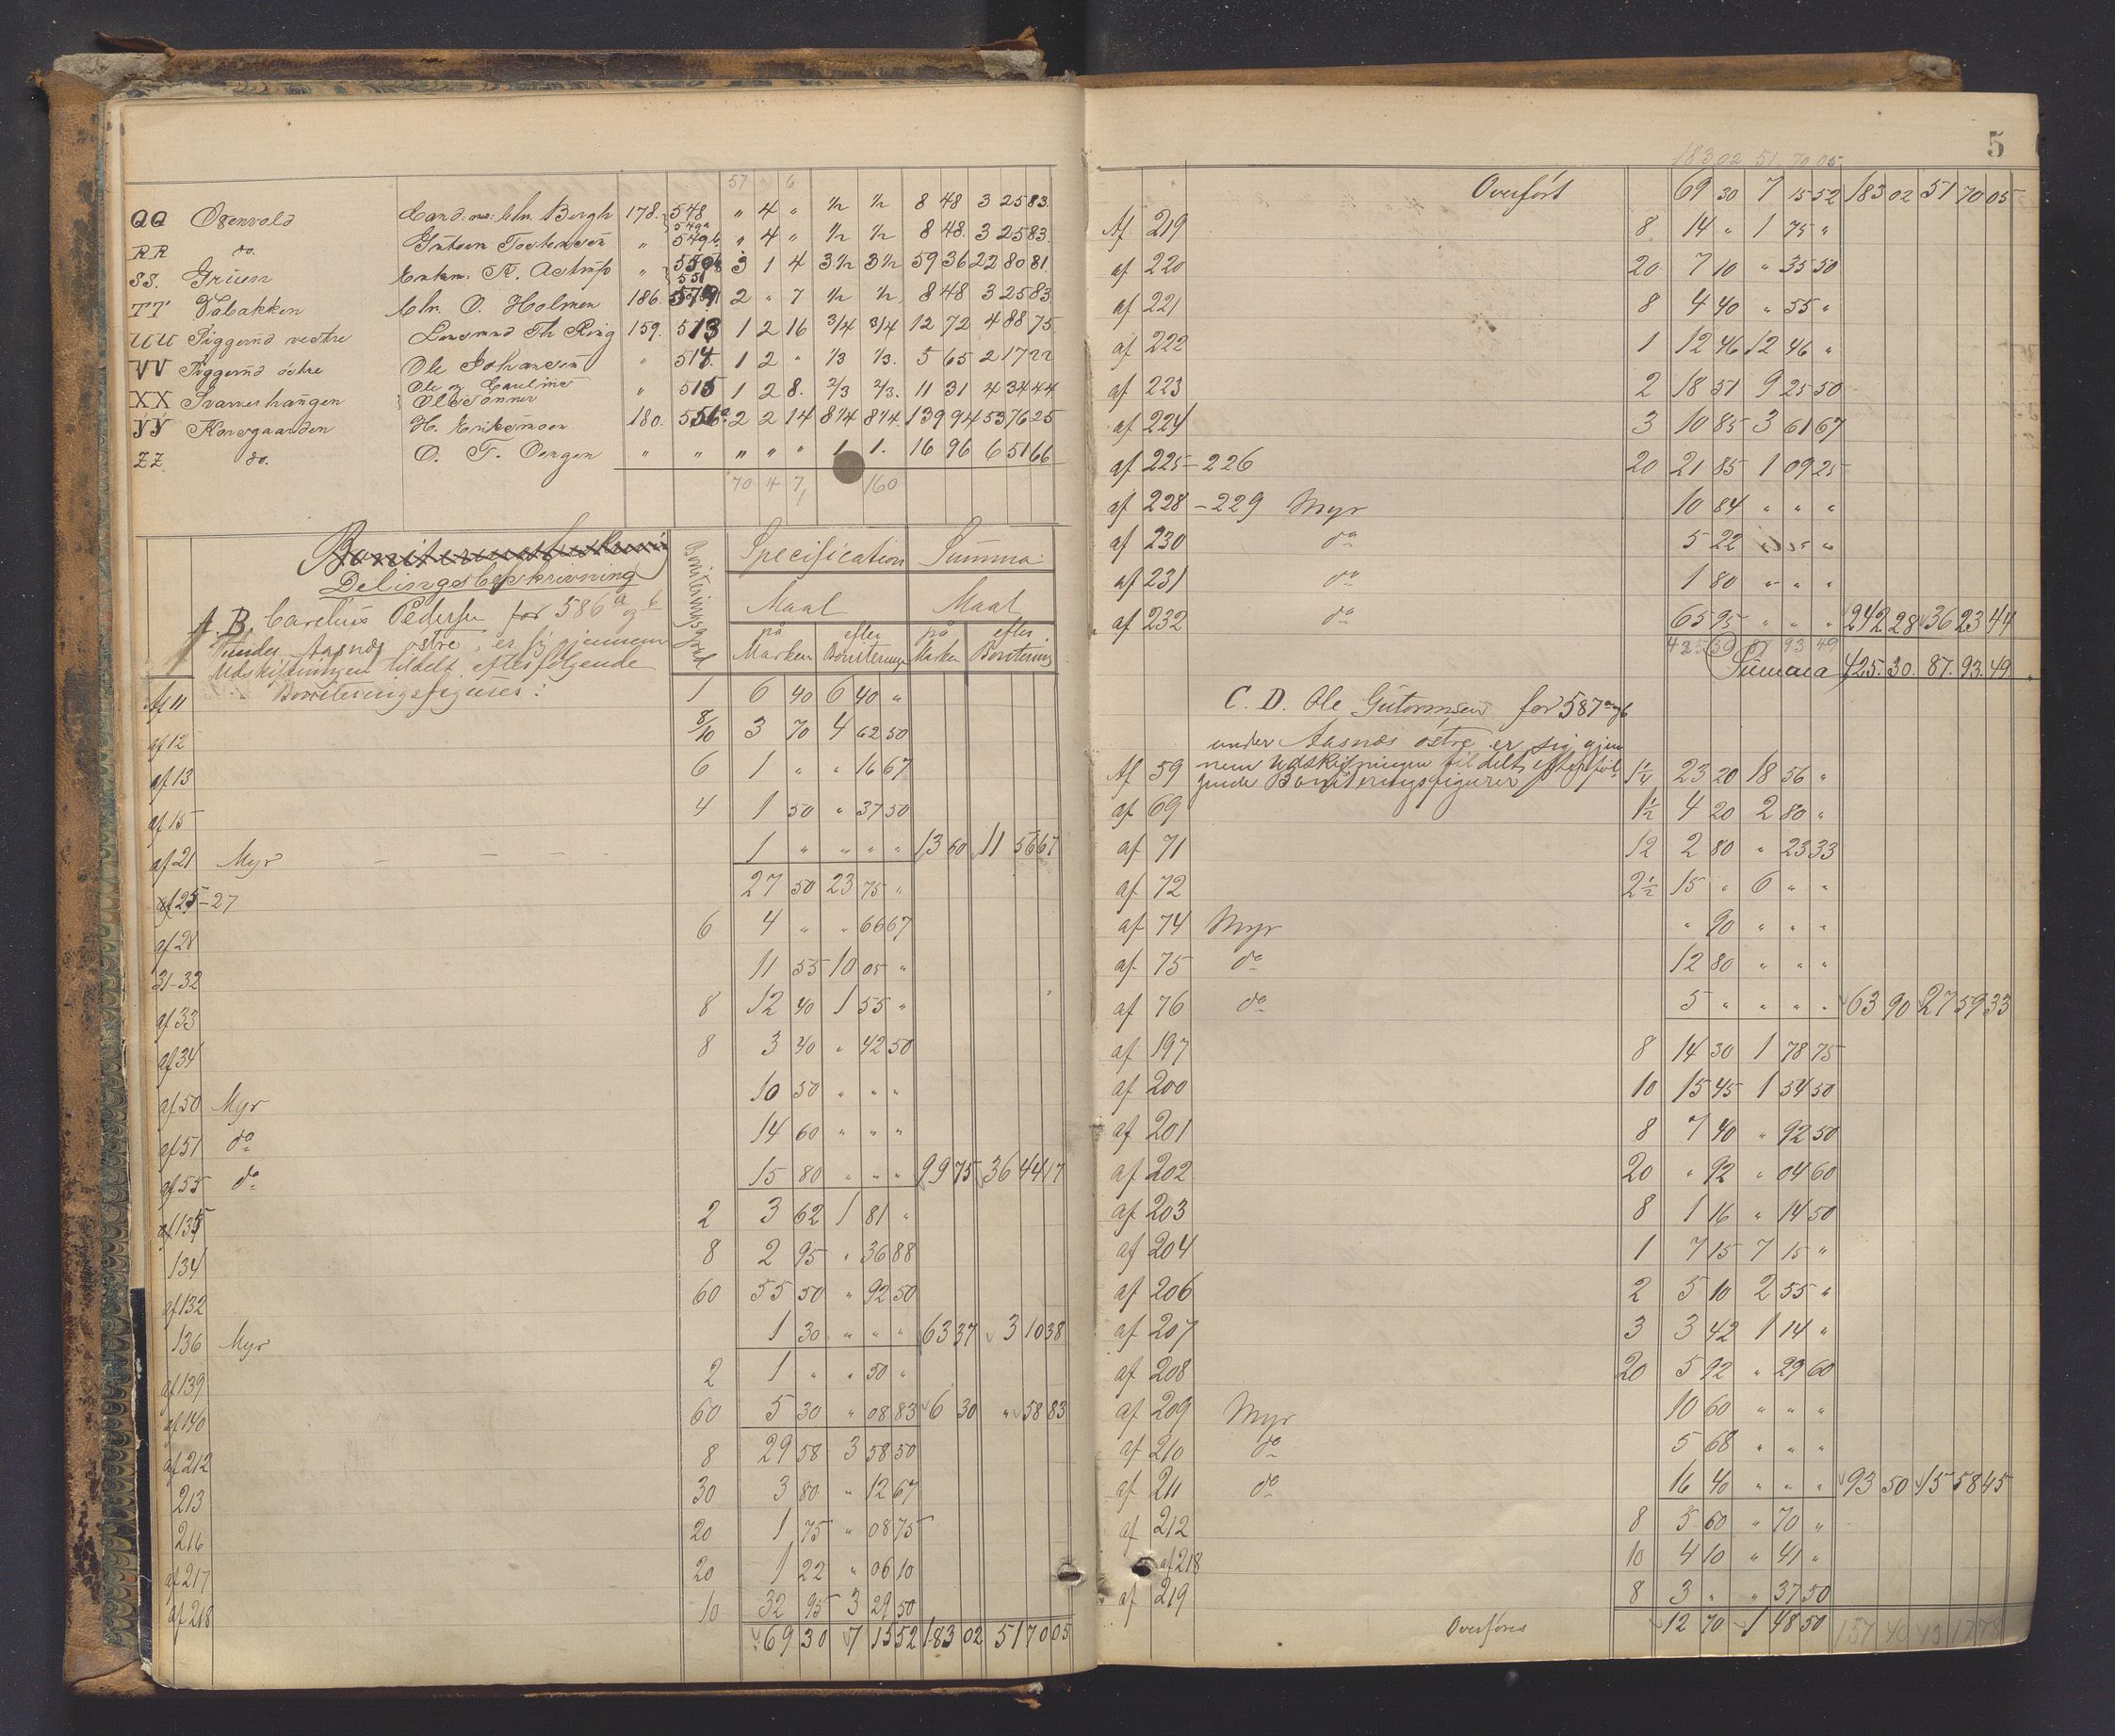 57 " 6
QQ Osenvold Cand: me: Chr. Bergh 178. 548 549a " 4 " 1/2 1/2 8 48 3 25 83.
RR do. Guttorm Tostensen " 549b " 4 " 1/2 1/2 8 48. 3 25 83.
SS. Gruen Enkm. N. Astrup " 550b 551 3 1 4 3 1/2 3 1/2 59 36 22 80 81.
TT Vabakken Chr. O. Holmen 186. 579 2 " 7 1/2 1/2. 8 48 3 25 83.
UU Piggerud vestre Lensmnd Th Ring 159. 513 1 2 16 3/4 3/4 12 72 4 88 75.
VV Piggerud østre Ole Johansen " 514. 1 2 " 1/3 1/3. 5 65 2 17 22
XX Svarverhaugen Ole og Caroline Olssønner " 515 1 2 8. 2/3 2/3. 11 31 4 34 44.
YY Konsgaarden H. Eriksmoen 180. 556a 2 2 14 8 1/4 8 1/4. 139 94 53 76 25
ZZ. do. O. T. Oengen " " " " " 1 1. 16 96 6 51 66
70 4 7 160
Delingsbeskrivning
Boniteringsgrad Specification Summa
Maal Maal
på Marken efter Bonitering på Marken efter Bonitering
A. B. Carelius Pedersen for 586 a og b
under Aasnes østre, er sig gjennem
Udskiftningen tildelt efterfølgende
Boniteringsfigurer:
Af 11 1 6 40 6 40 "
af 12 8/10 3 70 4 62 50
af 13 6 1 " " 16 67
af 15 4 1 50 " 37 50
af 21 Myr 1 " " " " 13 60 11 56 67
af 25-27 27 50 23 75 "
af 28 6 4 " " 66 67
31-32 11 55 10 05 "
af 33 8 12 40 1 55 "
af 34 8 3 40 " 42 50
af 50 Myr 10 50 " " "
af 51 do 14 60 " " "
af 55 do 15 80 " " " 99 75 36 44 17
af 135 2 3 62 1 81 "
134 8 2 95 " 36 88
af 132 60 55 50 " 92 50
136 Myr 1 30 " " " 63 37 3 10 38
af 139 2 1 " " 50 "
af 140 60 5 30 " 08 83 6 30 " 58 83
af 212 8 29 58 3 58 50
213 30 3 80 " 12 67
216 20 1 75 " 08 75
af 217 20 1 22 " 06 10
af 218 10 32 95 3 29 50
69 30 7 15 52 183 02 51 70 05
5
183 02 51. 70 05.
Overført 69 30 7 15 52 183 02 51 70 05
Af 219 8 14 " 1 75 "
af 220 20 7 10 " 35 50
af 221 8 4 40 " 55 "
af 222 1 12 46 12 46 "
af 223 2 18 51 9 25 50
af 224 3 10 85 3 61 67
af 225-226 20 21 85 1 09 25
af 228-229 Myr 10 84 " " "
af 230 do 5 22 " " "
af 231 do 1 80 " " "
af 232 do 65 95 " " " 242 28 36 23 44
425 30 87 93 49
Summa 425. 30. 87. 93. 49.
C. D. Ole Gutormsen for 587 a og b
under Aasnes østre er sig gjen
nem Udskiftningen tildelt efterføl-
gende Boniteringsfigurer
Af 59 1 1/4 23 20 18 56 "
af 69 1 1/2 4 20 2 80 "
af 71 12 2 80 " 23 33
af 72 2 1/2 15 " 6 " "
af 74 Myr " 90 " " "
af 75 do 12 80 " " "
af 76 do 5 " " " " 63 90 27 59 33
af 197 8 14 30 1 78 75
af 200 10 15 45 1 54 50
af 201 8 7 40 " 92 50
af 202 20 " 92 " 04 60
af 203 8 1 16 " 14 50
af 204 1 7 15 7 15 "
af 206 2 5 10 2 55 "
af 207 3 3 42 1 14 "
af 208 20 5 92 " 29 60
af 209 Myr 10 60 " " "
af 210 do 5 68 " " "
af 211 do 16 40 " " " 93 50 15 58 45
af 212 8 5 60 " 70 "
af 218 10 4 10 " 41 "
af 219 8 3 " " 37 50
Overføres 12 70 1 48 50 157 40 43 17 78